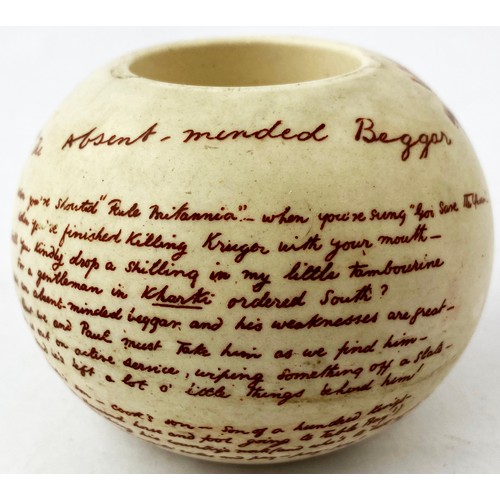 Absent-minded Beggar
you've shouted "Rule Britannia" - when you've sung "God Save the Queen"
when you've finished killing Kruger with your mouth -
you kindly drop a shilling in my little tambourine
a gentleman in Kharki ordered South?
an absent-minded beggar and his weaknesses are great -
we and Paul must take him as we find him -
out on active service, wiping something off a slate -
he's left a lot o' little things behind him!
Cook's son - Son of a hundred
and foot going to Table